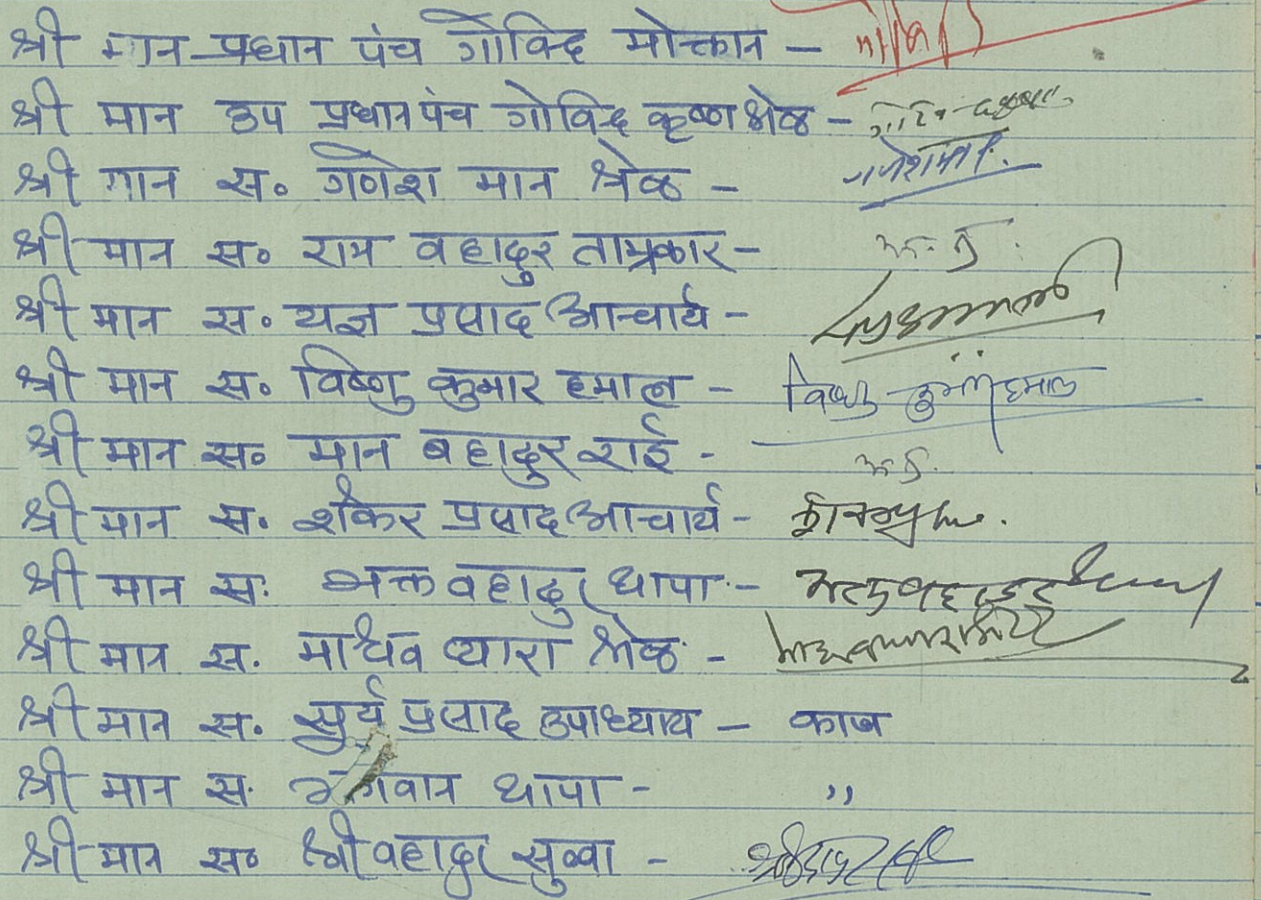 श्री मान प्रधान पंच गोविन्द मोक्तान –
श्री मान उप प्रधानपंच गोविन्द कृष्ण श्रेष्ठ –
श्री मान स॰ गणेश मान श्रेष्ठ – गणेशमान
श्री मान स॰ राम वहादुर ताम्रकार –
श्री मान स॰ यज्ञ प्रसाद आचार्य –
श्री मान स॰ विष्णु कुमार हमाल – विष्णु कुमार हमाल
श्री मान स॰ मान बहादुर राई -
श्री मान स॰ शंकर प्रसाद आचार्य –
श्री मान स॰ भक्त वहादुर थापा –
श्री मान स॰ माधव प्यारा श्रेष्ठ –
श्री मान स॰ सुर्य प्रसाद उपाध्याय – काज
श्री मान स॰ भगवान थापा – ,,
श्री मान स॰ श्री वहादुर सुव्वा –